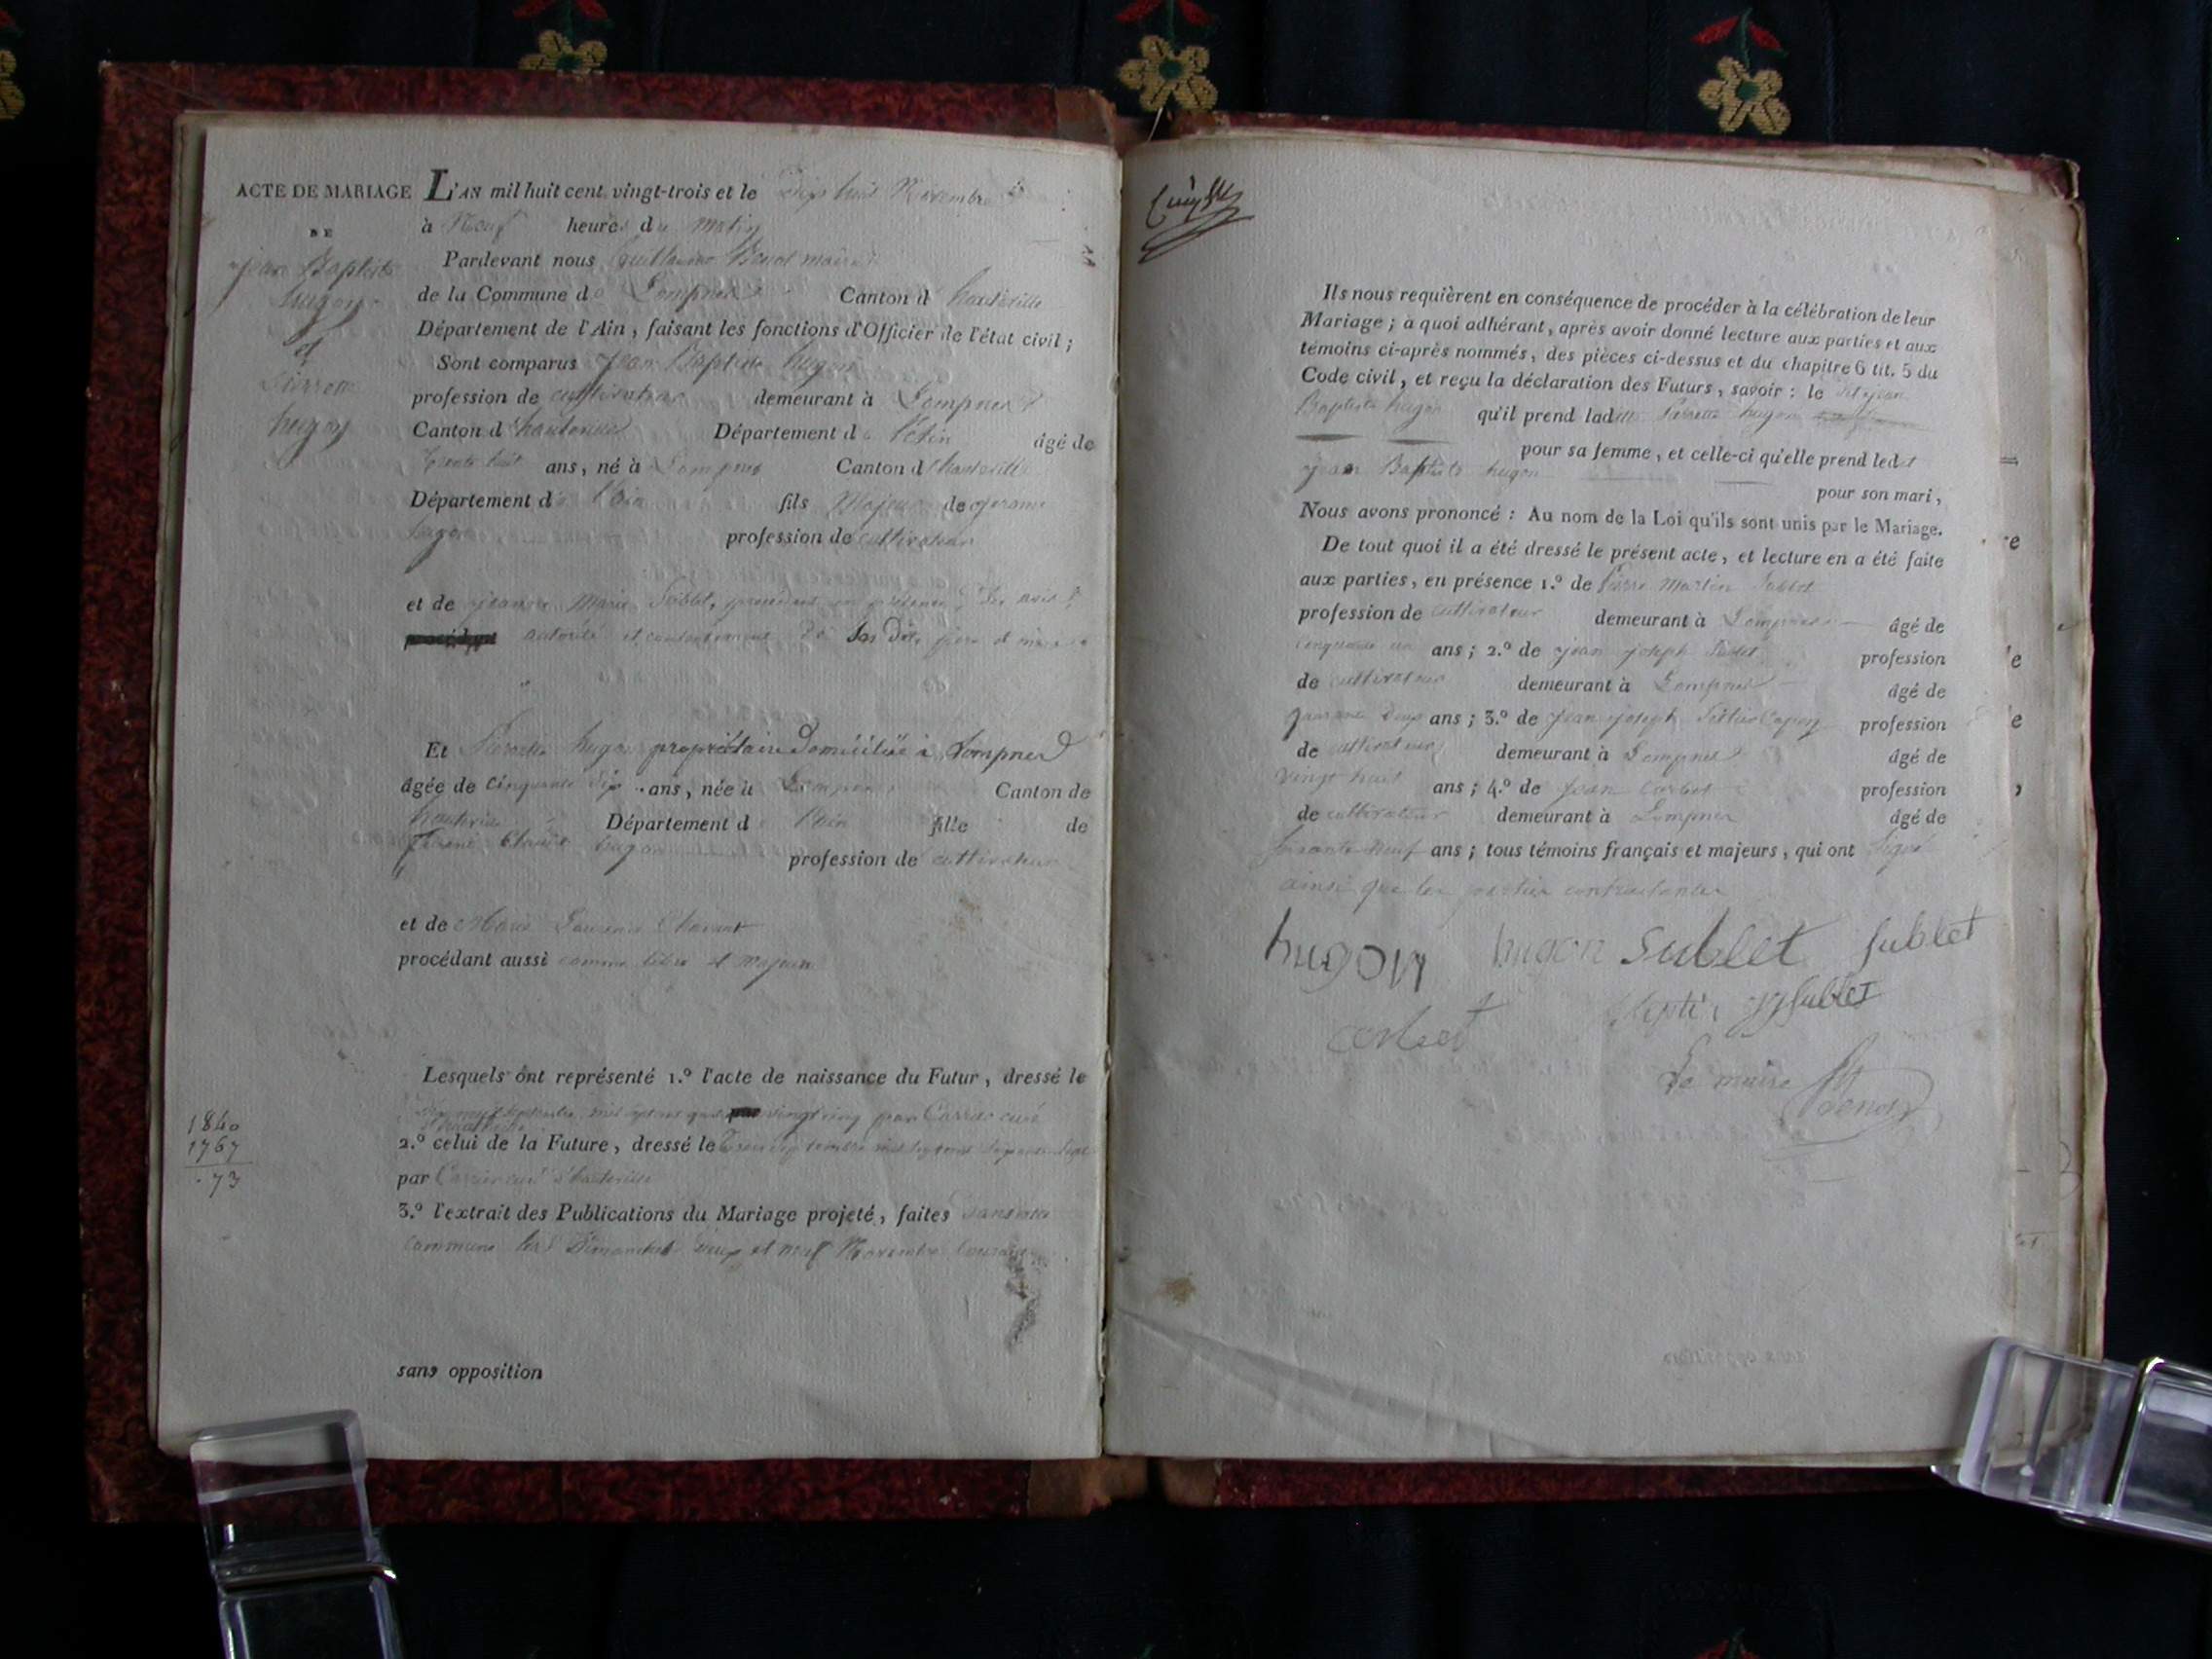 ACTE DE MARIAGE
DE
Jean Baptiste
hugon
et
Pierrette
hugon
L'AN mil huit cent vingt-trois et le Dix huit Novembre
à Neuf heures du matin
Pardevant nous Guillaume Benoit maire
de la Commune de Lompnes Canton d'hauteville
Département de l'Ain, faisant les fonctions d'Officier de l'état civil ;
Sont comparus Jean Baptiste hugon
profession de cultivateur demeurant à Lompnes
Canton d'hauteville Département de l'Ain âgé de
trente huit ans, né à Lompnes Canton d'hauteville
Département de l'Ain fils Majeur de jerome
hugon profession de cultivateur
et de jeanne Marie Sublet, procédant en présence de
autorité et consentement de ses dits père et mère
Et Pierrette hugon propriétaire Domiciliée à Lompnes
âgée de cinquante six ans, née à Lompnes Canton de
hauteville Département de l'Ain fille de
Claude hugon profession de cultivateur
et de Marie
procédant aussi comme libre et majeure
Lesquels ont représenté 1.º l'acte de naissance du Futur, dressé le
vingt cinq par Carrier curé
d'hauteville
2.º celui de la Future, dressé le septembre mil sept cent soixante sept
par Carrier curé d'hauteville
3.º l'extrait des Publications du Mariage projeté, faites dans cette
commune les Dimanches Deux et neuf Novembre courant
sans opposition
1840
1767
73
Ils nous requièrent en conséquence de procéder à la célébration de leur
Mariage ; à quoi adhérant, après avoir donné lecture aux parties et aux
témoins ci-après nommés, des pièces ci-dessus et du chapitre 6 tit. 5 du
Code civil, et reçu la déclaration des Futurs, savoir : le dit jean
Baptiste hugon qu'il prend ladite Pierrette hugon
pour sa femme, et celle-ci qu'elle prend ledit
jean Baptiste hugon
pour son mari,
Nous avons prononcé : Au nom de la Loi qu'ils sont unis par le Mariage.
De tout quoi il a été dressé le présent acte, et lecture en a été faite
aux parties, en présence 1.º de Pierre Martin Sublet
profession de cultivateur demeurant à Lompnes âgé de
cinquante un ans ; 2.º de jean joseph Sublet profession
de cultivateur demeurant à Lompnes âgé de
quarante Deux ans ; 3.º de jean joseph profession
de cultivateur demeurant à Lompnes âgé de
vingt huit ans ; 4.º de jean Corbet profession
de cultivateur demeurant à Lompnes âgé de
soixante neuf ans ; tous témoins français et majeurs, qui ont signé
ainsi que les parties contractantes
hugon hugon Sublet Sublet
corbet jjSublet
Le maire Benoit